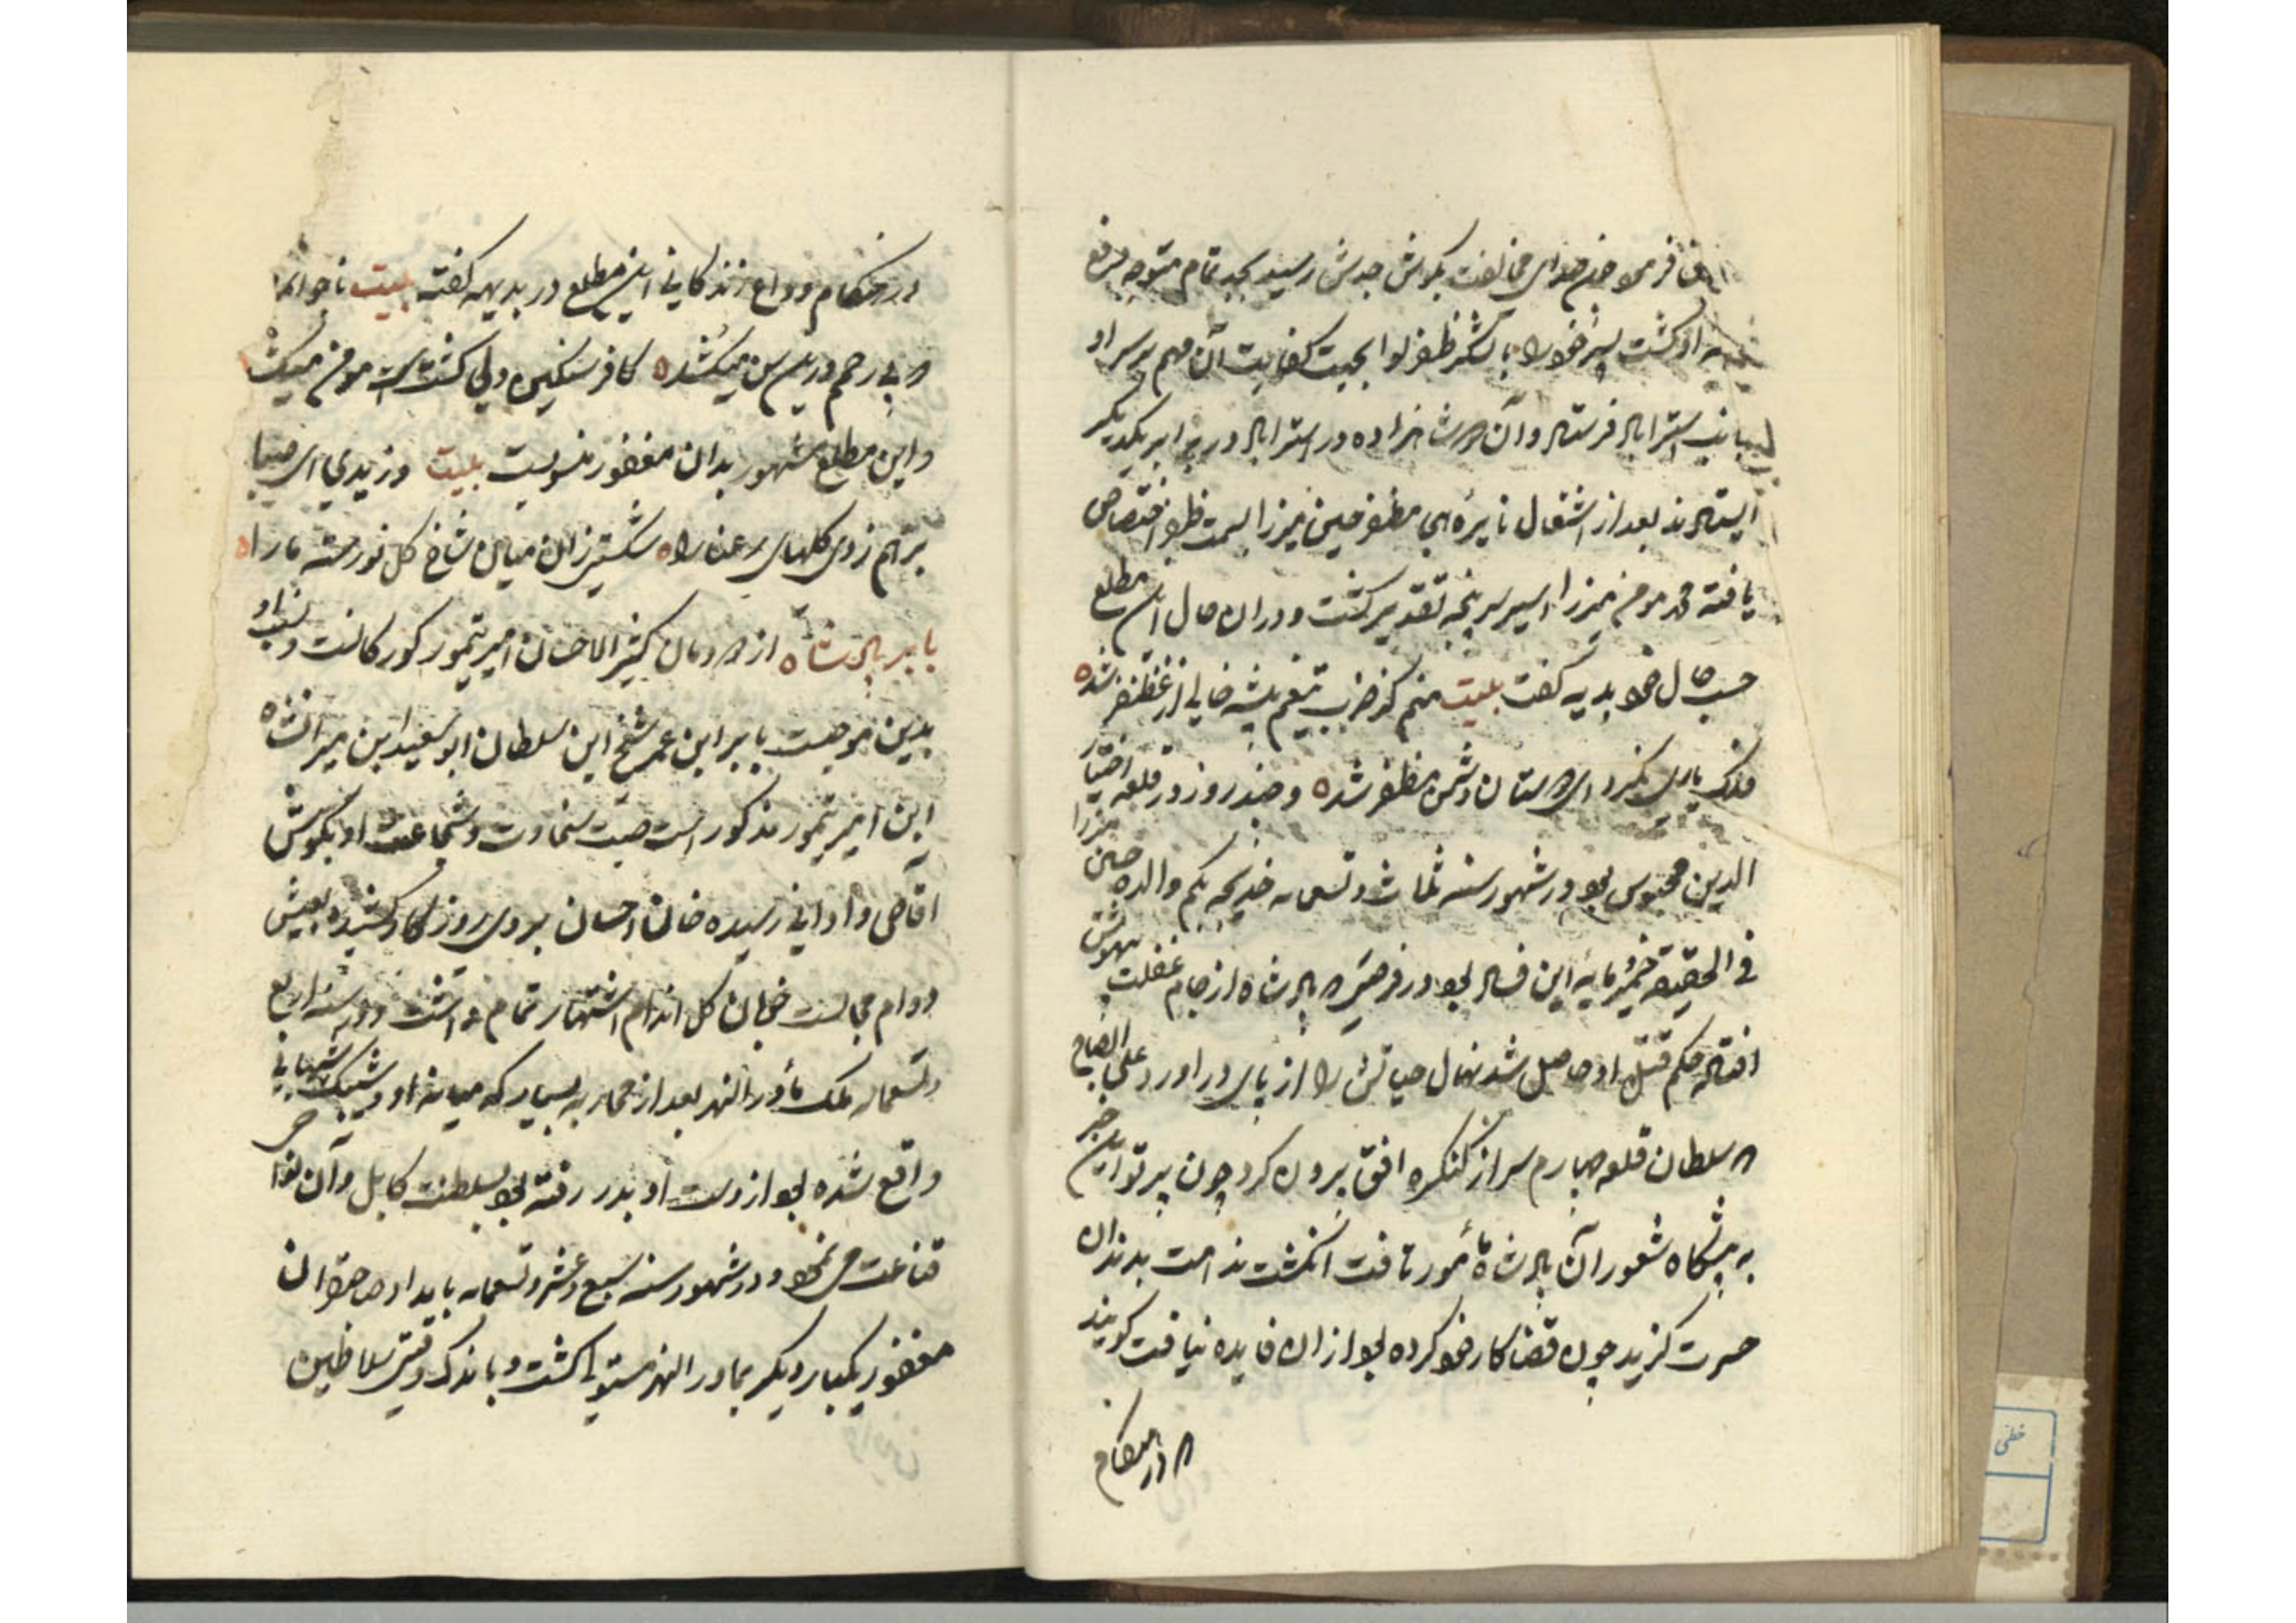 چون صدای مخالفت بگوش جدش رسید بجد تمام متوجه دفع
او گشت پسر خود را با لشکر ظفر لوا بجهت کفایت آن مهم بر سر او
بجانب استراباد فرستاد و آن دو شاهزاده در استراباد در برابر یکدیگر
ایستادند بعد از اشتعال نایره مظفر حسین میرزا بسمت ظفر اختصاص
یافته محمد مومن میرزا اسیر سرپنجه تقدیر گشت و در ان حال این مطلع
حسب حال خود بدیهه گفت بیت منم کز ضرب تیغم بیشه خالی از غضنفر شده
فلک یاری نکرد ای دوستان دشمن مظفر شده و چند روز در قلعه اختیار
الدین محبوس بود در شهور سنه ثلاث و تسعمایه خدیجه بیکم والده حسین میرزا
فی الحقیقه خمیر مایه این فساد بود در فرصتی که پادشاه از جام غفلت بیهوش
افتاد حکم قتل او حاصل شد نهال حیاتش را از پای در اورد علی الصباح
که سلطان قلعه چهارم سر از کنگره افق برون کرد چون پرتو این خبر
به پیشگاه شعور آن پادشاه مأمور تافت انگشت ندامت بدندان
حسرت گزید چون قضا کار خود کرده بود از ان فایده نیافت گویند
که در هنگام
در هنگام وداع زندکانی این مطلع در بدیهه گفته بیت ناجوانمرد
و بی رحم درین سن میکشده کافر سنکین دلی کشتست مومن میکشد
و این مطلع مشهور بدان مغفور منسوبست بیت وزیدی ای صبا
بر هم زدی کلهای رعنا راه شکستی زان میان شاخ کل نورسته ما راه
بابر پادشاه از دودمان کثیر الاحسان امیر تیمور کورکانست و نسب او
بدین موجبست بابر ابن عمر شیخ ابن سلطان ابو سعید ابن میرانشاه
ابن امیر تیمور مذکور است صیت سخاوت و شجاعت او بکوش
اقاصی و ادانی رسیده خان احسان بروی روزکار کشیده بعیش
دوام مجالست خوبان کل اندام اشتهار تمام داشت و در سنه اربع
و تسعمایه ملک ماوراء النهر بعد از محاربه بسیار که میانه او و شیبک شیبانی
واقع شده بود از دست او بدر رفته بود بسلطنت کابل و آن نواحی
قناعت می نمود و در شهور سنه سبع و عشر و تسعمایه بامداد صاحبقران
مغفور یکبار دیکر بماوراء النهر مستولی کشت و باندک وقتی سلاطین
خطی